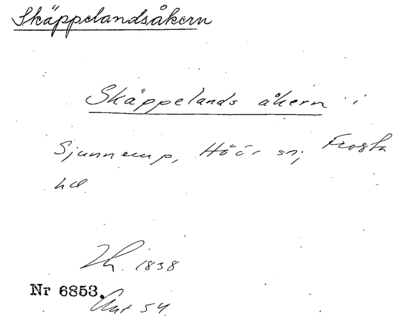 Skäppelandsåkern
Skäppelands åkern i
Sjunnerup, Höörs sn, Frosta
hd
Lh. 1838
Nr 6853.
Akt 54